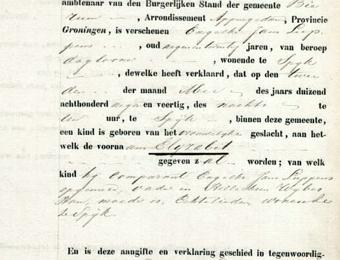 ambtenaar van den Burgerlijken Stand der gemeente Bie
rum, Arrondissement Appingedam, Provincie
Groningen, is verschenen Engelke Jans Luppens
, oud negenentwintig jaren, van beroep
dagloner, wonende te Spijk
, dewelke heeft verklaard, dat op den
der maand Mei des jaars duizend
achthonderd negen en veertig, des nachts te
ure, te Spijk, binnen deze gemeente,
een kind is geboren van het vrouwelijke geslacht, aan het-
welk de voornaam Elizabet
gegeven zal worden; van welk
kind hij comparant Engelke Jans Luppens
vader en
moeder is, Echtelieden, wonende
te Spijk.
En is deze aangifte en verklaring geschied in tegenwoordig-